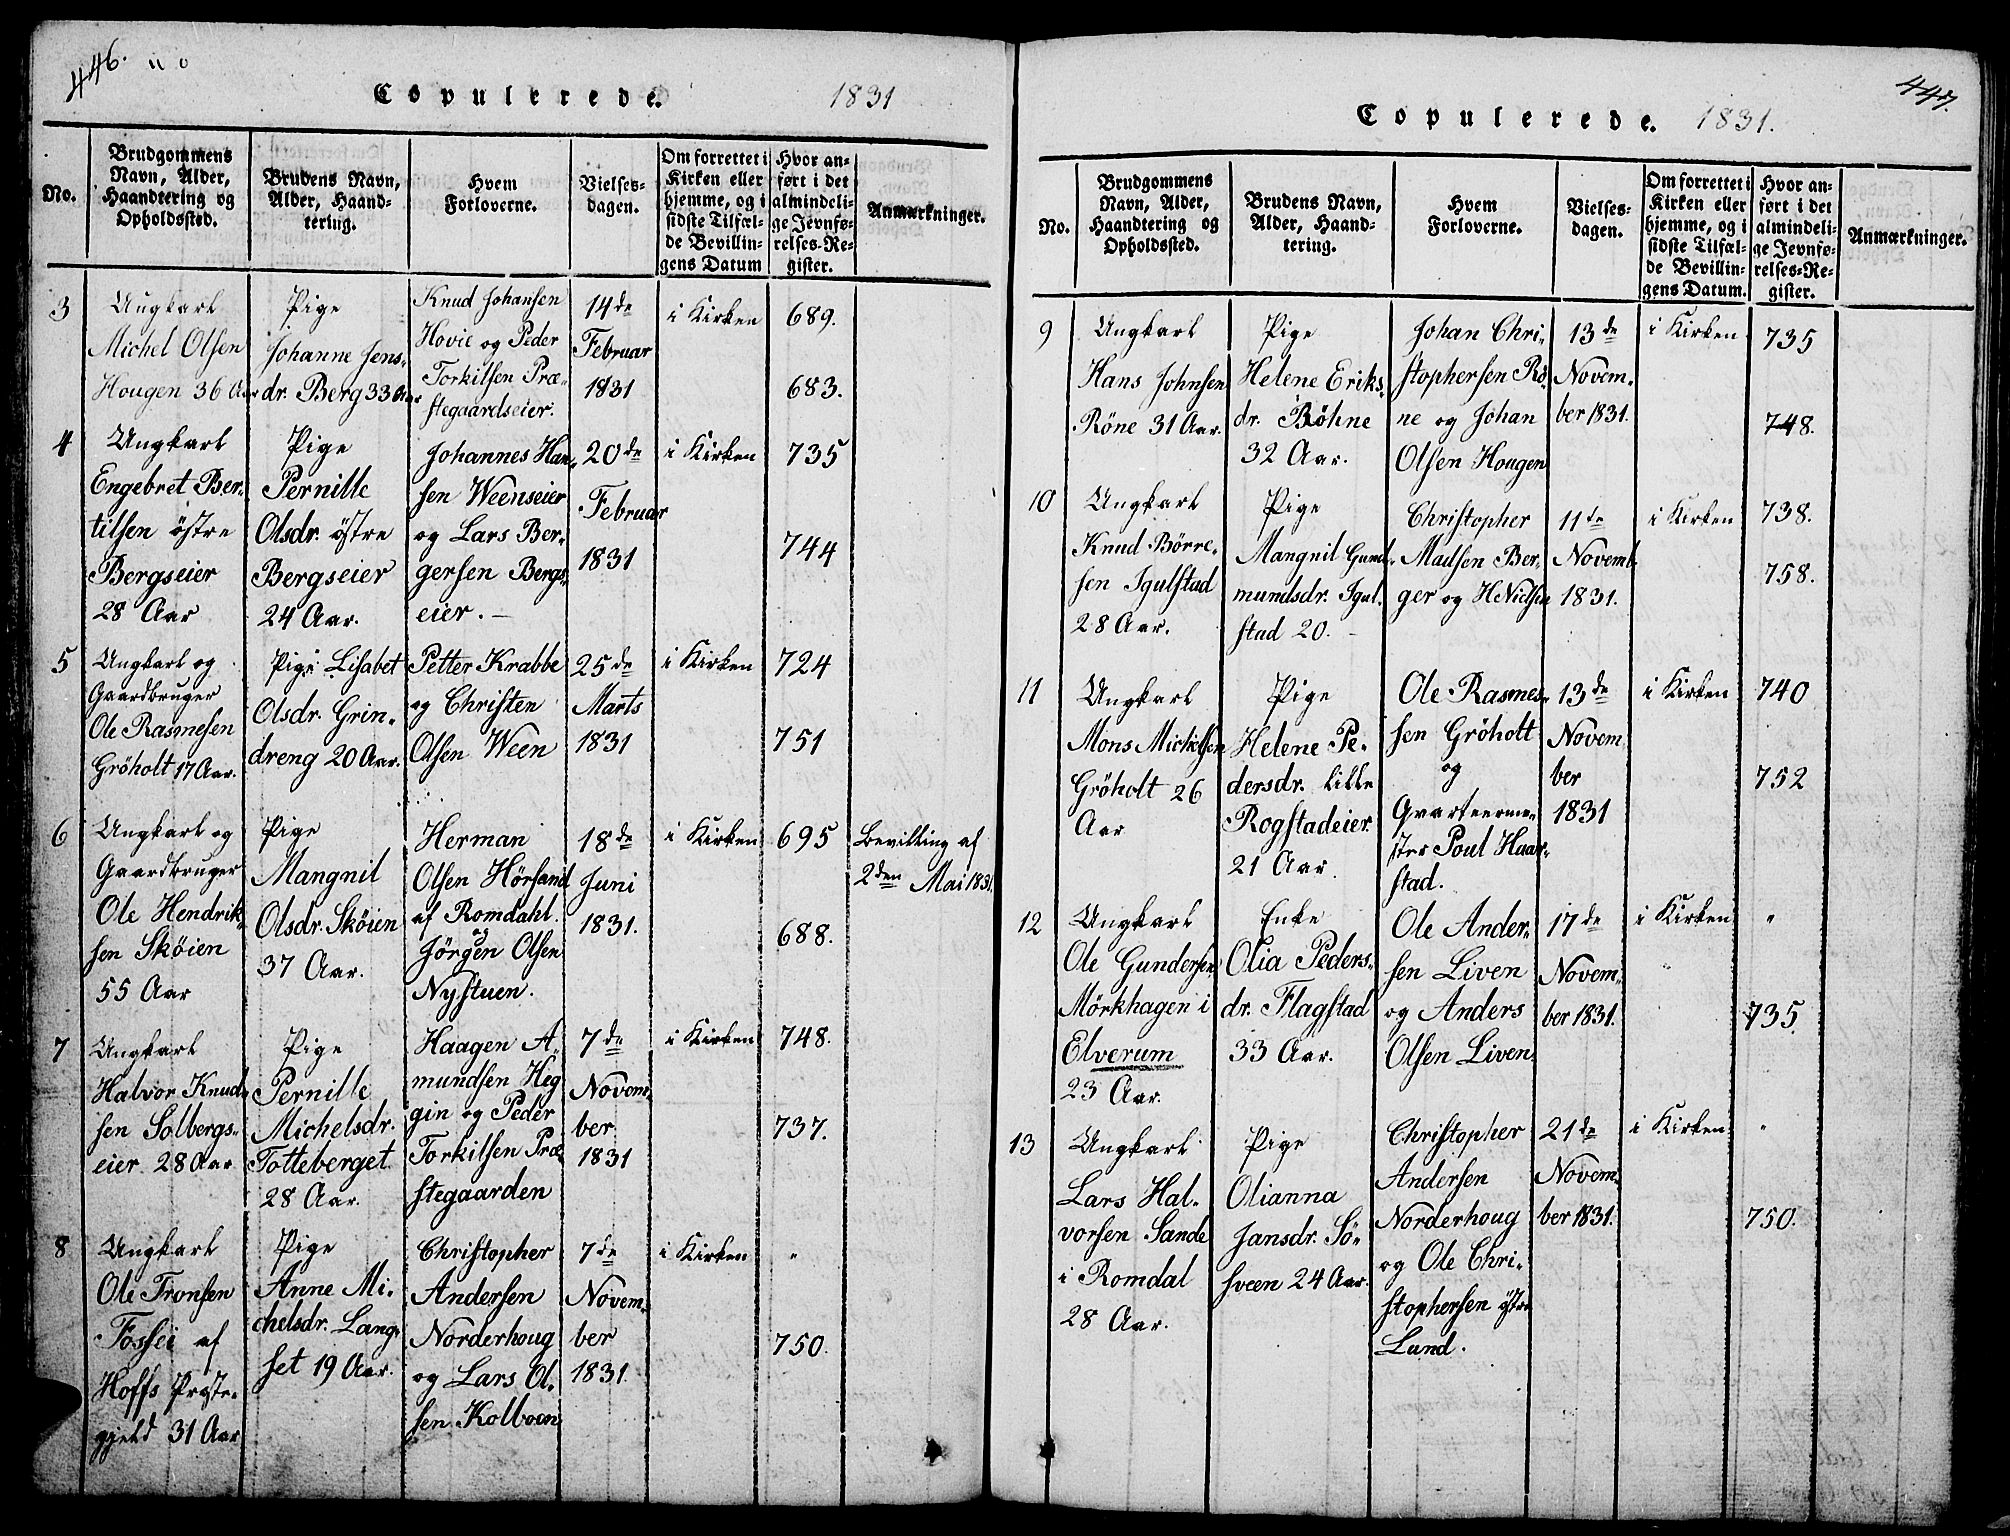 446.
Copulerede. 1831
No.
Brudgommens
Navn, Alder,
Haandtering og
Opholdssted.
Brudens Navn,
Alder, Haand-
tering.
Hvem
Forloverne.
Vielses-
dagen.
Om forrettet i
Kirken eller
hjemme, og i
sidste Tilfæl-
de Bevillin-
gens Datum
Hvor an-
ført i det
almindeli-
ge Jevnfø-
relses-Re-
gister.
Anmærkninger.
3
Ungkarl
Michel Olsen
Hougen 36 Aar
Pige
Johanne Jens-
dr. Berg 33 Aar
Knud Johansen
Hovie og Peder
Torkilsen Præ-
stegaardseier.
14de
Februar
1831
i Kirken
689.
683.
4
Ungkarl
Engebret Ber-
tilsen østre
Bergseier
28 Aar
Pige
Pernille
Olsdr. østre
Bergseier
24 Aar.
Johannes Han-
sen Weenseier
og Lars Ber-
gersen Bergs-
eier. —
20de
Februar
1831
i Kirken
735
744
5
Ungkarl og
Gaardbruger
Ole Rasmesen
Gröholt 17 Aar.
Pige Lisabet
Olsdr. Grin-
dreng 20 Aar.
Petter Krabbe
og Christen
Olsen Ween
25de
Marts
1831
i Kirken
724
751
6
Ungkarl og
Gaardbruger
Ole Hendrik-
sen Skøien
55 Aar
Pige
Mangnil
Olsdr. Skøien
37 Aar.
Herman
Olsen Hörsand
af Romdahl.
og
Jörgen Olsen
Nystuen.
18de
Juni
1831.
i Kirken
695
688.
Bevilling af
2den Mai 1831.
7
Ungkarl
Halvor Knud-
sen Solbergs-
eier 28 Aar
Pige
Pernille
Michelsdr.
Totteberget
28 Aar.
Haagen A-
mundsen Heg
gin og Peder
Torkilsen Præ
stegaarden
7de
Novem-
ber
1831
i Kirken
748.
737.
8
Ungkarl
Ole Tronsen
Fossei af
Hoffs Præste-
gjeld 31 Aar
Pige
Anne Mi-
chelsdr. Lang-
set 19 Aar.
Christopher
Andersen
Norderhoug
og Lars Ol-
sen Kolboen
7de
Novem-
ber
1831.
i Kirken
"
750.
447.
Copulerede. 1831.
No.
Brudgommens
Navn, Alder,
Haandtering og
Opholdssted.
Brudens Navn,
Alder, Haand-
tering.
Hvem
Forloverne.
Vielses-
dagen.
Om forrettet i
Kirken eller
hjemme, og i
sidste Tilfæl-
de Bevillin-
gens Datum.
Hvor an-
ført i det
almindeli-
ge Jevnfø-
relses-Re-
gister.
Anmærkninger.
9
Ungkarl
Hans Johnsen
Röne 31 Aar.
Pige
Helene Eriks-
dr. Böhne
32 Aar.
Johan Chri-
stophersen Rö-
ne og Johan
Olsen Hougen
13de
Novem-
ber 1831.
i Kirken
735
748.
10
Ungkarl
Knud Börre-
sen Igulstad
28 Aar.
Pige
Mangnil Gud-
mundsdr. Igul-
stad 20. —
Christopher
Madsen Ber-
ger og H Nielsen
11de
Novemb.
1831.
i Kirken
738.
758.
11
Ungkarl
Mons Michelsen
Gröholt 26
Aar
Pige
Helene Pe-
dersdr. lille
Rogstadeier
21 Aar.
Ole Rasmes-
sen Gröholt
og
Qvarteerme-
ster Poul Haar-
stad.
13de
Novem
ber
1831
i Kirken
740
752
12
Ungkarl
Ole Gundersen
Mörkhagen i
Elverum
23 Aar.
Enke
Olia Peders-
dr. Flagstad
33 Aar.
Ole Ander-
sen Liven
og Anders
Olsen Liven
17de
Novem-
ber 1831.
i Kirken
"
735.
13
Ungkarl
Lars Hal-
vorsen Sande
i Romdal
28 Aar.
Pige
Olianna
Jansdr. Sö-
sveen 24 Aar.
Christopher
Andersen
Norderhoug
og Ole Chri-
stophersen østre
Lund.
21de
Novem-
ber 1831.
i Kirken
"
750.